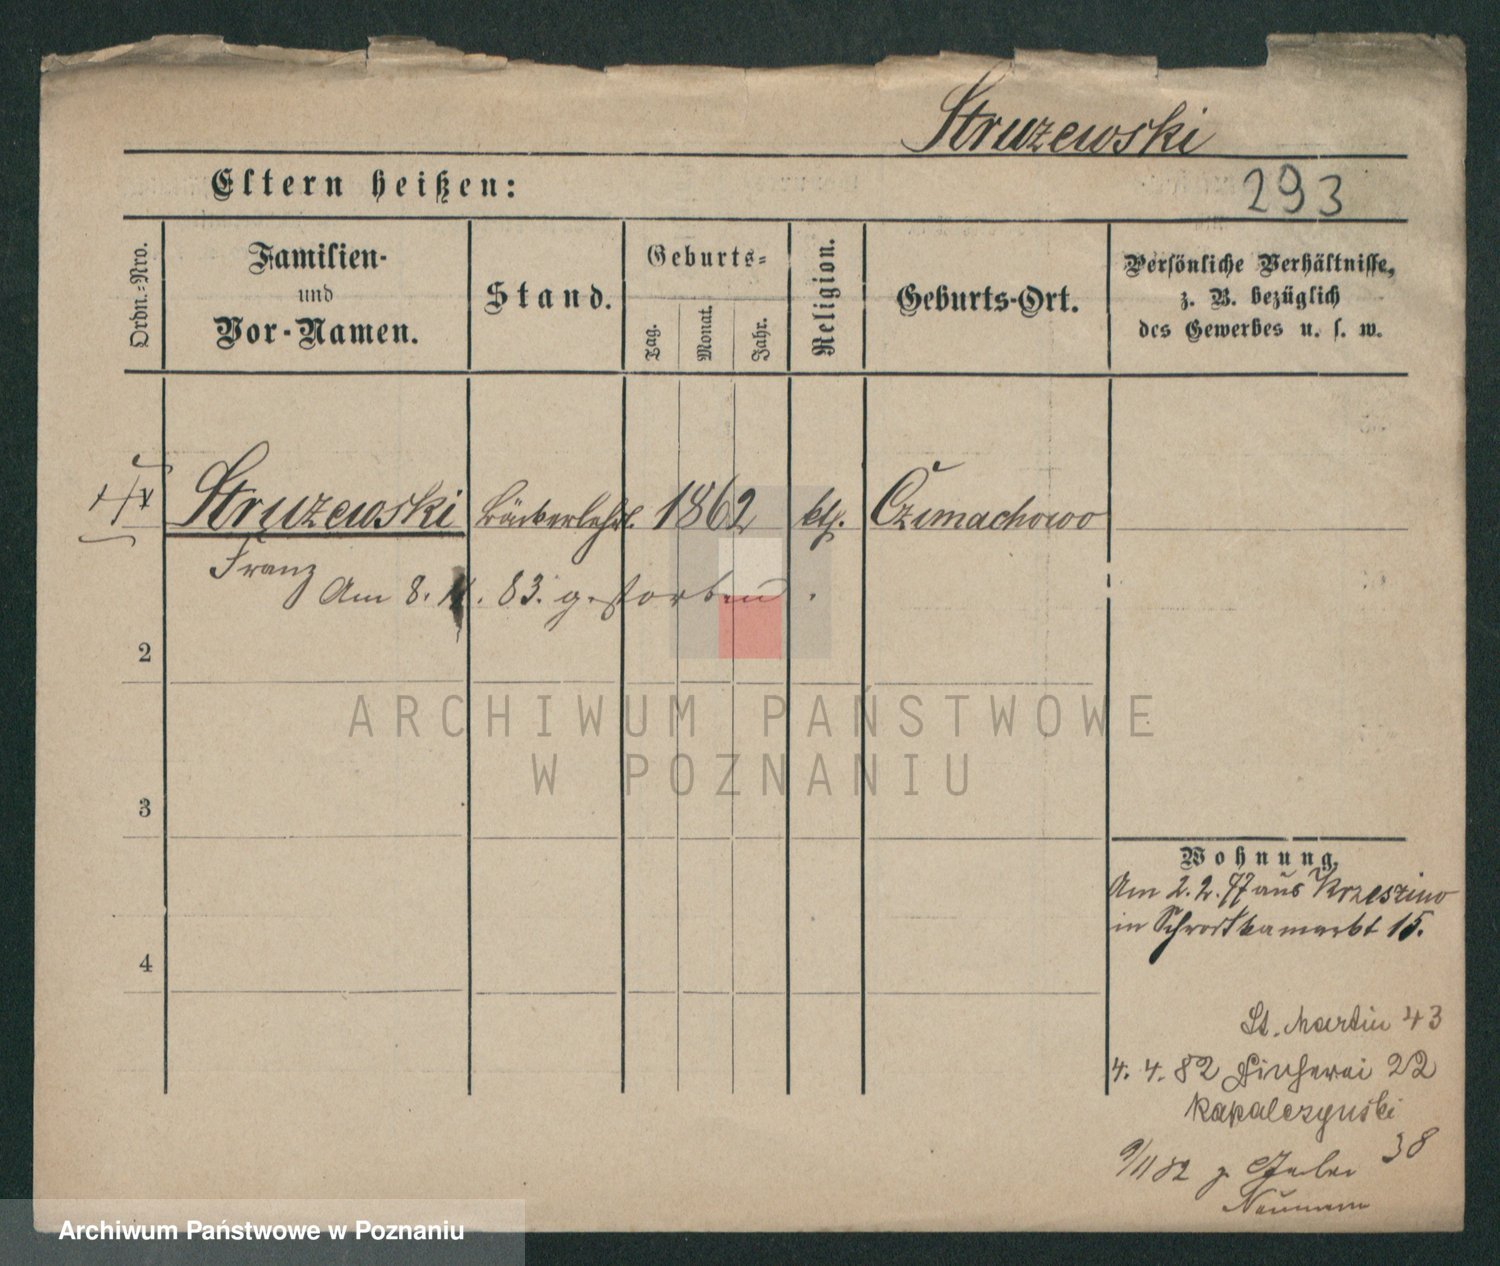 Struzewski
Eltern heißen:
293
Ordn.-Nro.
Familien-
und
Vor-Namen.
Stand.
Geburts-
Tag.
Monat.
Jahr.
Religion.
Geburts-Ort.
Persönliche Verhältnisse,
z. B. bezüglich
des Gewerbes u. s. w.
Struzewski Bäckerlehrl. 1862 kth. Czimachowo
Franz
Am 8. . 83. gestorben.
2
3
4
Wohnung,
Am 2. 2. 77 aus Krzeszino
in Schrodkamarkt 15.
St. Martin 43
4. 4. 82 Fischerei 22
Kapalczynski
9/11 82 38
Neumann
ARCHIWUM PAŃSTWOWE
W POZNANIU
Archiwum Państwowe w Poznaniu